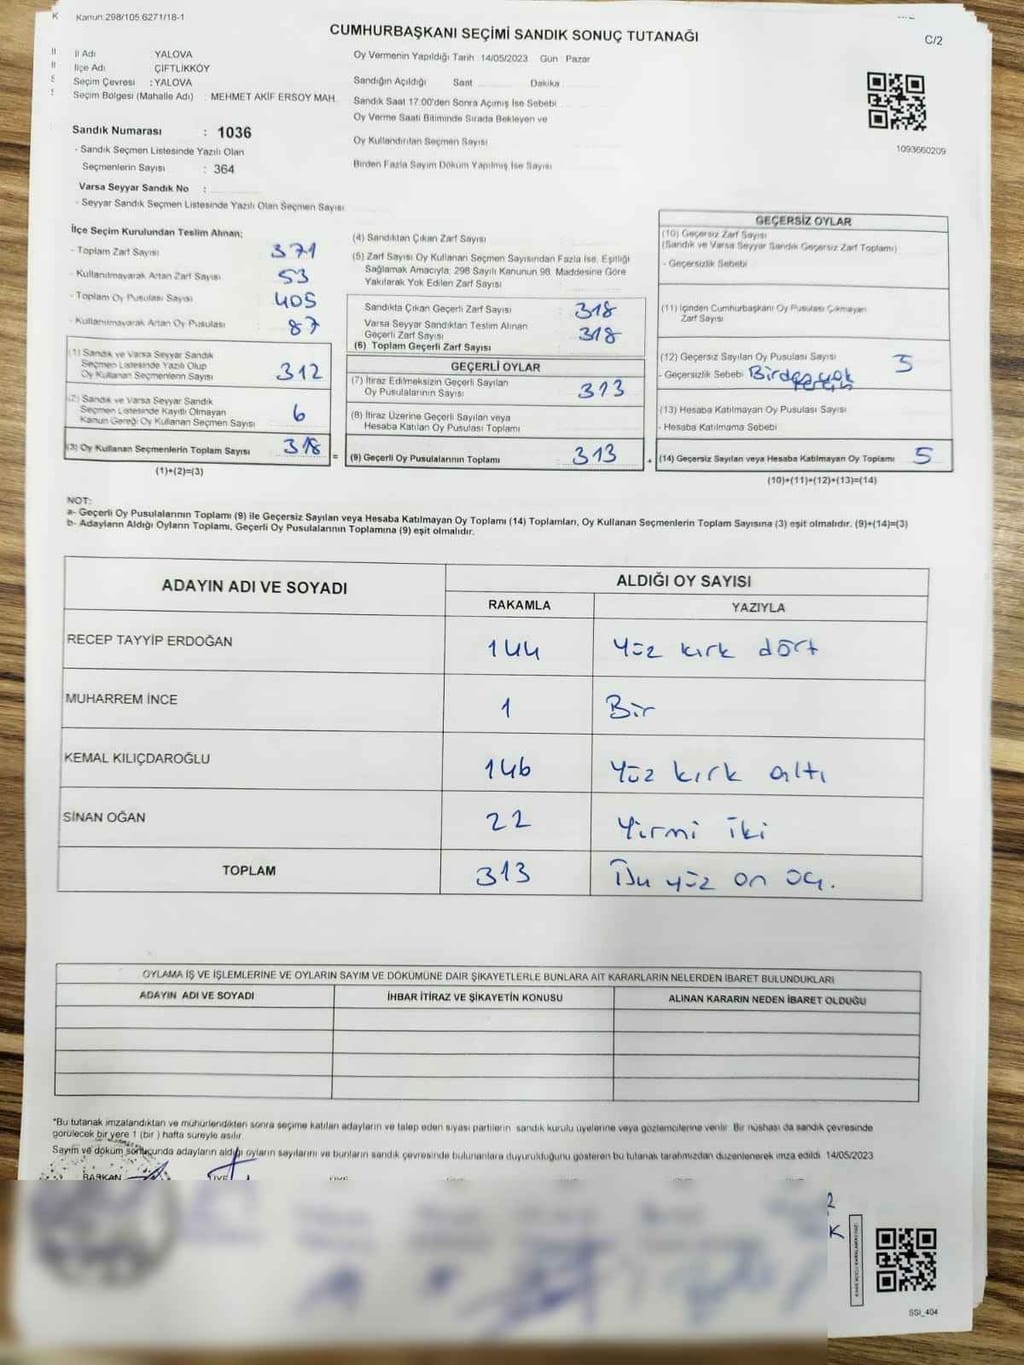 Kanun:298/105.6271/18-1
CUMHURBAŞKANI SEÇİMİ SANDIK SONUÇ TUTANAĞI
C/2
İl Adı YALOVA
İlçe Adı ÇİFTLİKKÖY
Seçim Çevresi : YALOVA
Seçim Bölgesi (Mahalle Adı) : MEHMET AKİF ERSOY MAH.
Oy Vermenin Yapıldığı Tarih 14/05/2023 Gün Pazar
Sandığın Açıldığı Saat Dakika
Sandık Saat 17:00'den Sonra Açımış İse Sebebi
Oy Verme Saati Bitiminde Sırada Bekleyen ve
Oy Kullandırılan Seçmen Sayısı
Birden Fazla Sayım Döküm Yapılmış İse Sayısı
1093660209
Sandık Numarası : 1036
- Sandık Seçmen Listesinde Yazılı Olan
Seçmenlerin Sayısı : 364
Varsa Seyyar Sandık No :
- Seyyar Sandık Seçmen Listesinde Yazılı Olan Seçmen Sayısı
İlçe Seçim Kurulundan Teslim Alınan;
- Toplam Zarf Sayısı 371
- Kullanılmayarak Artan Zarf Sayısı 53
- Toplam Oy Pusulası Sayısı 405
- Kullanılmayarak Artan Oy Pusulası 87
(1) Sandık ve Varsa Seyyar Sandık
Seçmen Listesinde Yazılı Olup
Oy Kullanan Seçmenlerin Sayısı 312
(2) Sandık ve Varsa Seyyar Sandık
Seçmen Listesinde Kayıtlı Olmayan
Kanun Gereği Oy Kullanan Seçmen Sayısı 6
(3) Oy Kullanan Seçmenlerin Toplam Sayısı 318
=
(1)+(2)=(3)
(4) Sandıktan Çıkan Zarf Sayısı
(5) Zarf Sayısı Oy Kullanan Seçmen Sayısından Fazla İse, Eşitliği
Sağlamak Amacıyla; 298 Sayılı Kanunun 98. Maddesine Göre
Yakılarak Yok Edilen Zarf Sayısı
Sandıkta Çıkan Geçerli Zarf Sayısı 318
Varsa Seyyar Sandıktan Teslim Alınan
Geçerli Zarf Sayısı 318
(6) Toplam Geçerli Zarf Sayısı
GEÇERLİ OYLAR
(7) İtiraz Edilmeksizin Geçerli Sayılan
Oy Pusulalarının Sayısı 313
(8) İtiraz Üzerine Geçerli Sayılan veya
Hesaba Katılan Oy Pusulası Toplamı
(9) Geçerli Oy Pusulalarının Toplamı 313
+
GEÇERSİZ OYLAR
(10) Geçersiz Zarf Sayısı
(Sandık ve Varsa Seyyar Sandık Geçersiz Zarf Toplamı)
- Geçersizlik Sebebi
(11) İçinden Cumhurbaşkanı Oy Pusulası Çıkmayan
Zarf Sayısı
(12) Geçersiz Sayılan Oy Pusulası Sayısı 5
- Geçersizlik Sebebi Birden çok
tercih
(13) Hesaba Katılmayan Oy Pusulası Sayısı
- Hesaba Katılmama Sebebi
(14) Geçersiz Sayılan veya Hesaba Katılmayan Oy Toplamı 5
(10)+(11)+(12)+(13)=(14)
NOT:
a- Geçerli Oy Pusulalarının Toplamı (9) ile Geçersiz Sayılan veya Hesaba Katılmayan Oy Toplamı (14) Toplamları, Oy Kullanan Seçmenlerin Toplam Sayısına (3) eşit olmalıdır. (9)+(14)=(3)
b- Adayların Aldığı Oyların Toplamı, Geçerli Oy Pusulalarının Toplamına (9) eşit olmalıdır.
ADAYIN ADI VE SOYADI
ALDIĞI OY SAYISI
RAKAMLA YAZIYLA
RECEP TAYYİP ERDOĞAN 144 Yüz kırk dört
MUHARREM İNCE 1 Bir
KEMAL KILIÇDAROĞLU 146 Yüz kırk altı
SİNAN OĞAN 22 Yirmi iki
TOPLAM 313 yüz on üç.
OYLAMA İŞ VE İŞLEMLERİNE VE OYLARIN SAYIM VE DÖKÜMÜNE DAİR ŞİKAYETLERLE BUNLARA AİT KARARLARIN NELERDEN İBARET BULUNDUKLARI
ADAYIN ADI VE SOYADI İHBAR İTİRAZ VE ŞİKAYETİN KONUSU ALINAN KARARIN NEDEN İBARET OLDUĞU
*Bu tutanak imzalandıktan ve mühürlendikten sonra seçime katılan adayların ve talep eden siyasi partilerin sandık kurulu üyelerine veya gözlemcilerine verilir. Bir nüshası da sandık çevresinde
görülecek bir yere 1 (bir) hafta süreyle asılır.
Sayım ve döküm sonucunda adayların aldığı oyların sayılarını ve bunların sandık çevresinde bulunanlara duyurulduğunu gösteren bu tutanak tarafımızdan düzenlenerek imza edildi. 14/05/2023
BAŞKAN ÜYE
SSİ_404